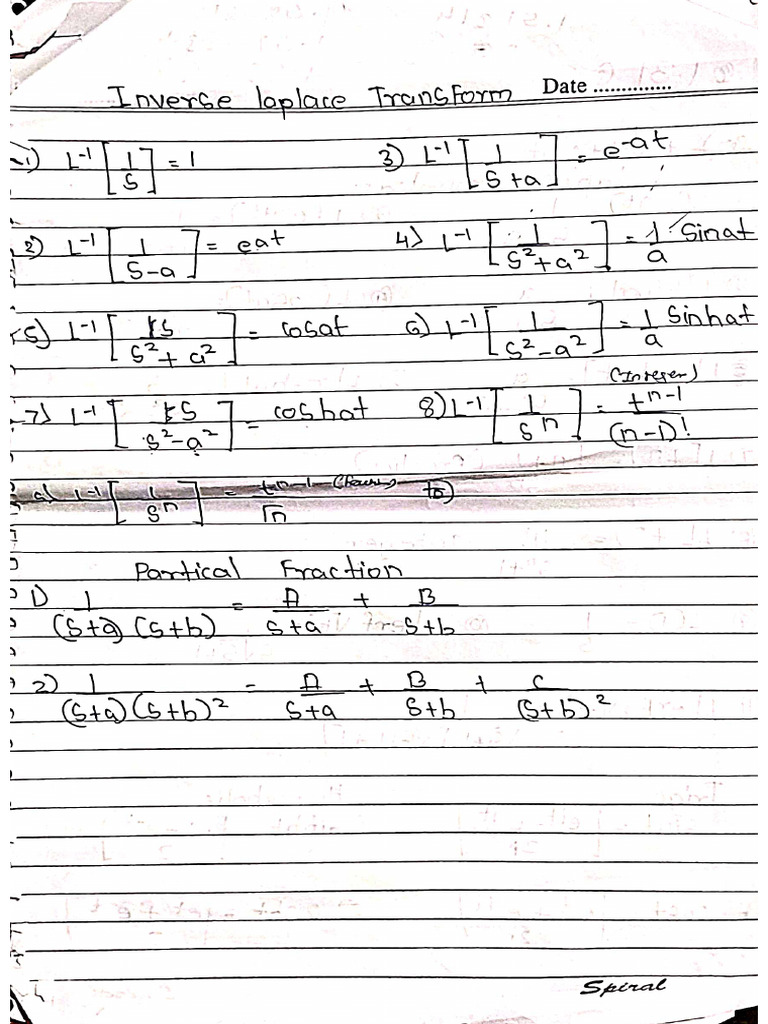 Inverse laplace Transform Date ..............
1) L⁻¹ [1/S] = 1 3) L⁻¹ [1/(S+a)] = e^-at
2) L⁻¹ [1/(S-a)] = eat 4) L⁻¹ [1/(S²+a²)] = 1/a Sinat
5) L⁻¹ [S/(S²+a²)] = cosat 6) L⁻¹ [1/(S²-a²)] = 1/a Sinhat
7) L⁻¹ [S/(S²-a²)] = coshat 8) L⁻¹ [1/S^n] = t^n-1/(n-1)! (Integer)
9) L⁻¹ [1/S^n] = t^n-1/√n
Partical Fraction
1) 1/((S+a)(S+b)) = A/(S+a) + B/(S+b)
2) 1/((S+a)(S+b)²) = A/(S+a) + B/(S+b) + C/(S+b)²
Spiral